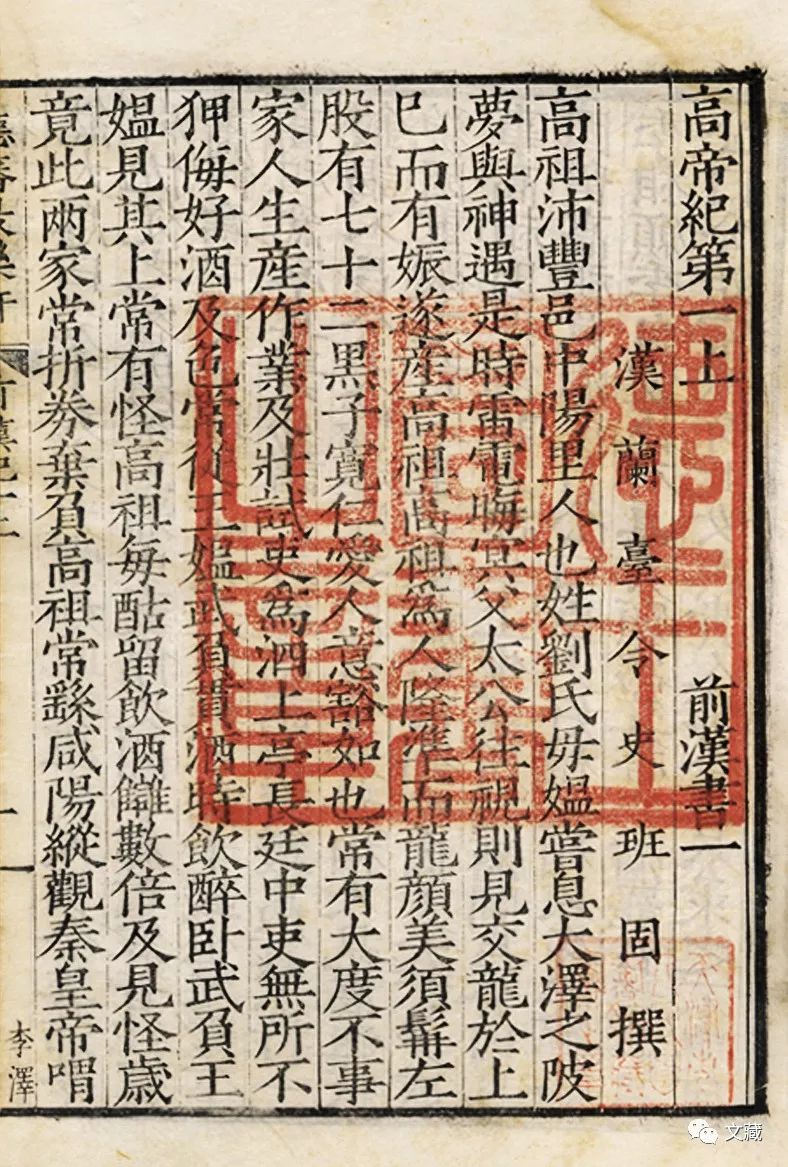 高帝紀第一上　前漢書一
漢蘭臺令史班固撰
高祖沛豐邑中陽里人也姓劉氏毋媼嘗息大澤之陂
夢與神遇是時雷電晦冥父太公往視則見交龍於上
已而有娠遂産高祖高祖爲人隆準而龍顏美須髯左
股有七十二黑子寬仁愛人意豁如也常有大度不事
家人生産作業及壯試吏爲泗上亭長廷中吏無所不
狎侮好酒及色常從王媼武負貰酒時飲醉卧武負王
媼見其上常有怪高祖每酤留飲酒讎數倍及見怪歳
竟此兩家常折券棄負高祖常繇咸陽縱觀秦皇帝喟
李澤
文藏